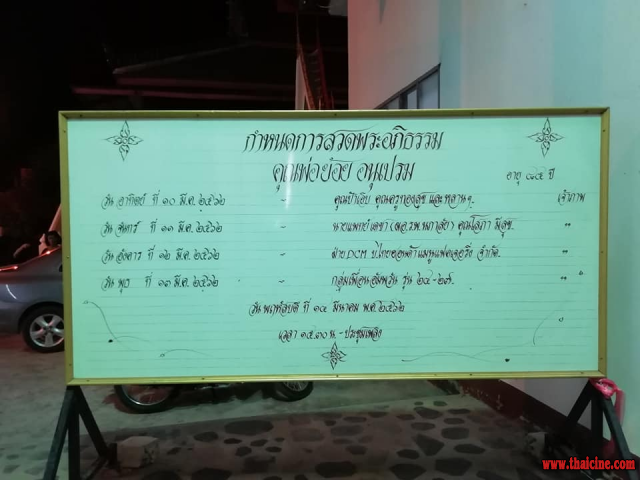 กำหนดการสวดพระอภิธรรม
คุณพ่อย้อย อนุเปรม
อายุ ๘๔ ปี
วัน อาทิตย์ ที่ ๑๐ มี.ค. ๒๕๖๒ - คุณป้าเอิบ คุณครูทองสุข และหลานๆ. เจ้าภาพ
วัน จันทร์ ที่ ๑๑ มี.ค. ๒๕๖๒ - นายแพทย์เดชา (ผอ.รพ.นภาลัย) คุณโสภา มีสุข. "
วัน อังคาร ที่ ๑๒ มี.ค. ๒๕๖๒ - ฝ่าย DCM บ.ไทยฮอนด้าแมนูแฟคเจอริ่ง จำกัด. "
วัน พุธ ที่ ๑๓ มี.ค. ๒๕๖๒ - กลุ่มเพื่อนอัมพวัน รุ่น ๒๔-๒๗. "
วัน พฤหัสบดี ที่ ๑๔ มีนาคม พ.ศ. ๒๕๖๒
เวลา ๑๕.๓๐ น. - ประชุมเพลิง
www.thaicine.com